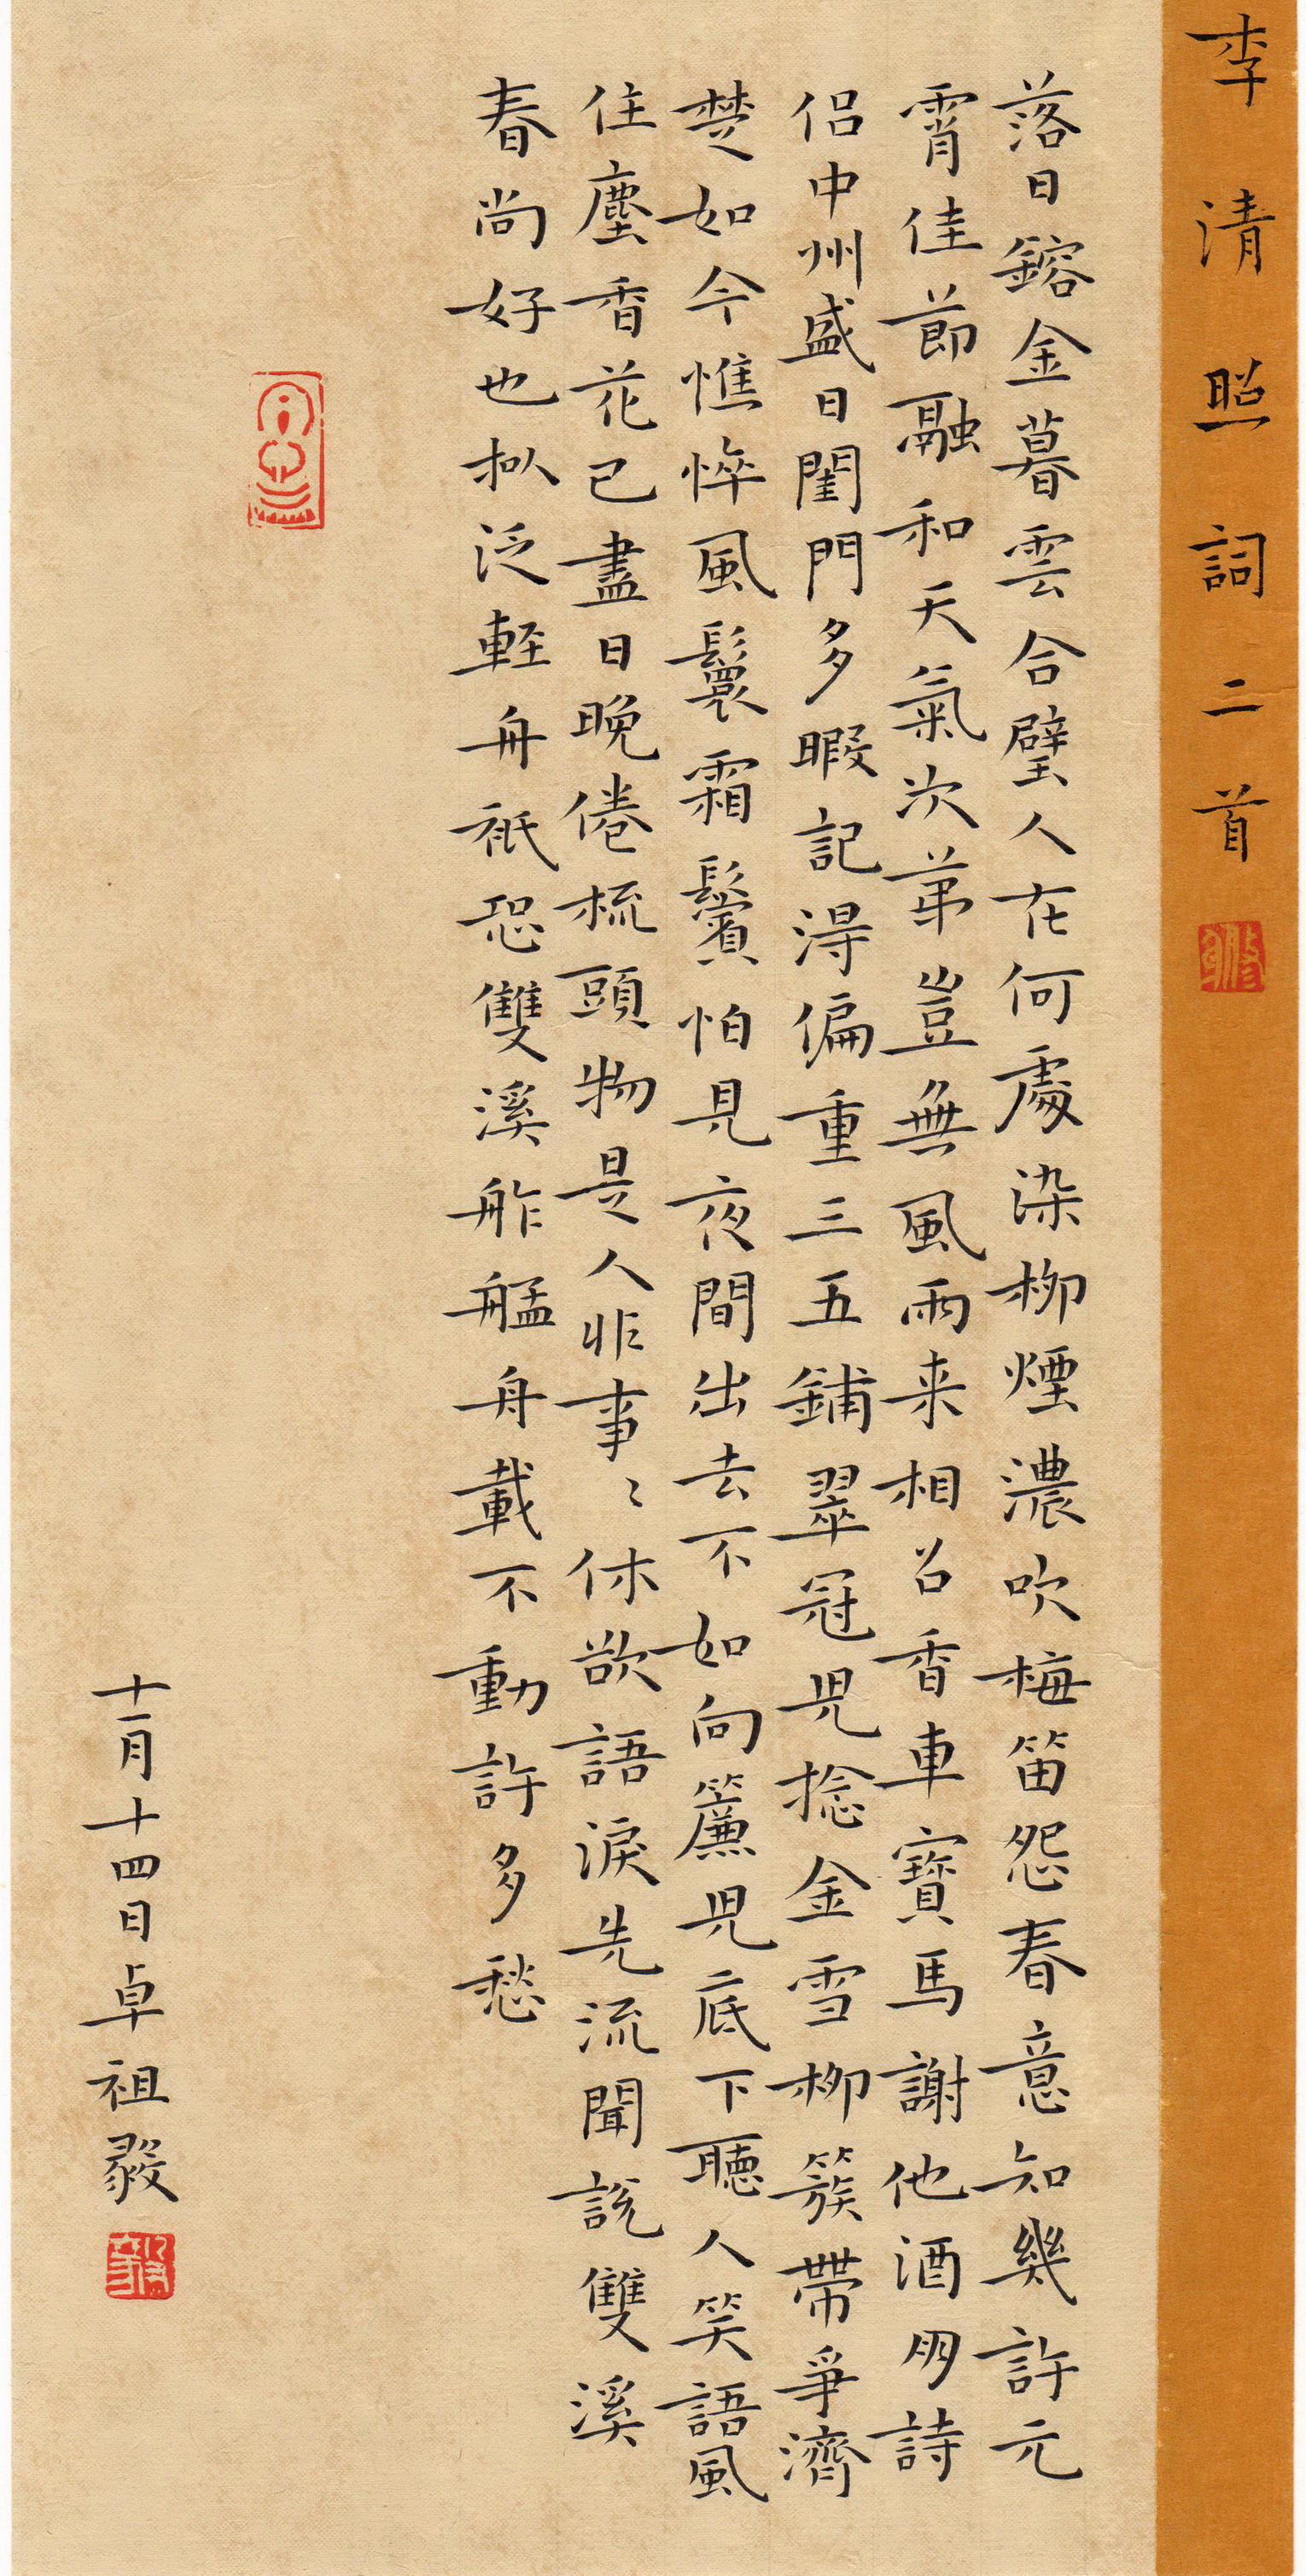 李清照詞二首
落日鎔金暮雲合璧人在何處染柳煙濃吹梅笛怨春意知幾許元
宵佳節融和天氣次第豈無風雨来相召香車寶馬謝他酒朋詩
侶中州盛日閨門多暇記淂偏重三五鋪翠冠児捻金雪柳簇帶爭濟
楚如今憔悴風鬟霜鬢怕見夜間出去不如向簾児底下聽人笑語風
住塵香花已盡日晚倦梳頭物是人非事〻休欲語淚先流聞說雙溪
春尚好也拟泛軽舟衹恐雙溪舴艋舟載不動許多愁
十一月十四日卓祖毅